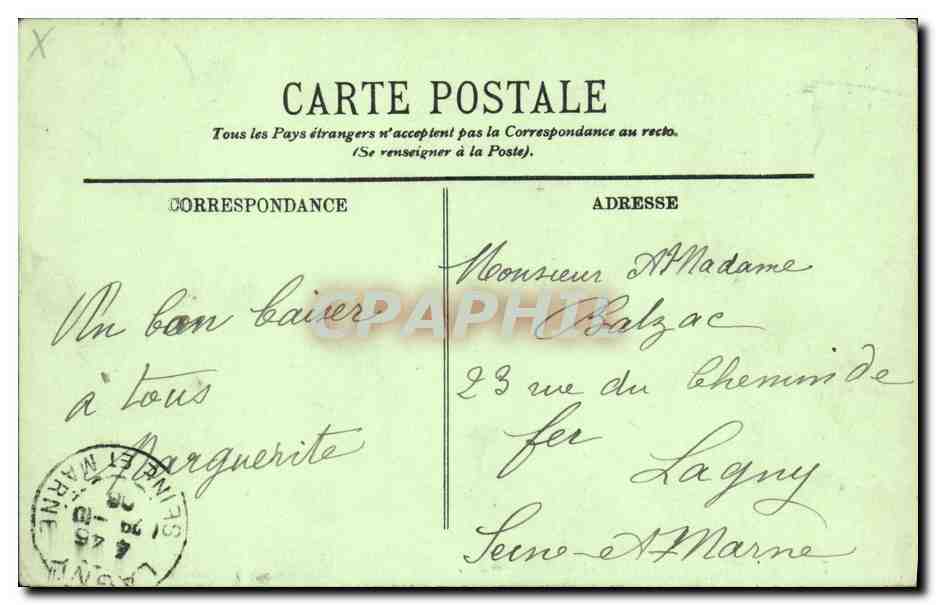 X
CARTE POSTALE
Tous les Pays étrangers n'acceptent pas la Correspondance au recto.
(Se renseigner à la Poste).
CORRESPONDANCE
Un bon baiser
à tous
Marguerite
ADRESSE
Monsieur et Madame
Balzac
23 rue du Chemin de
fer
Lagny
Seine-et-Marne
CPAPHIL
LAGNY
SEINE ET MARNE
4 45